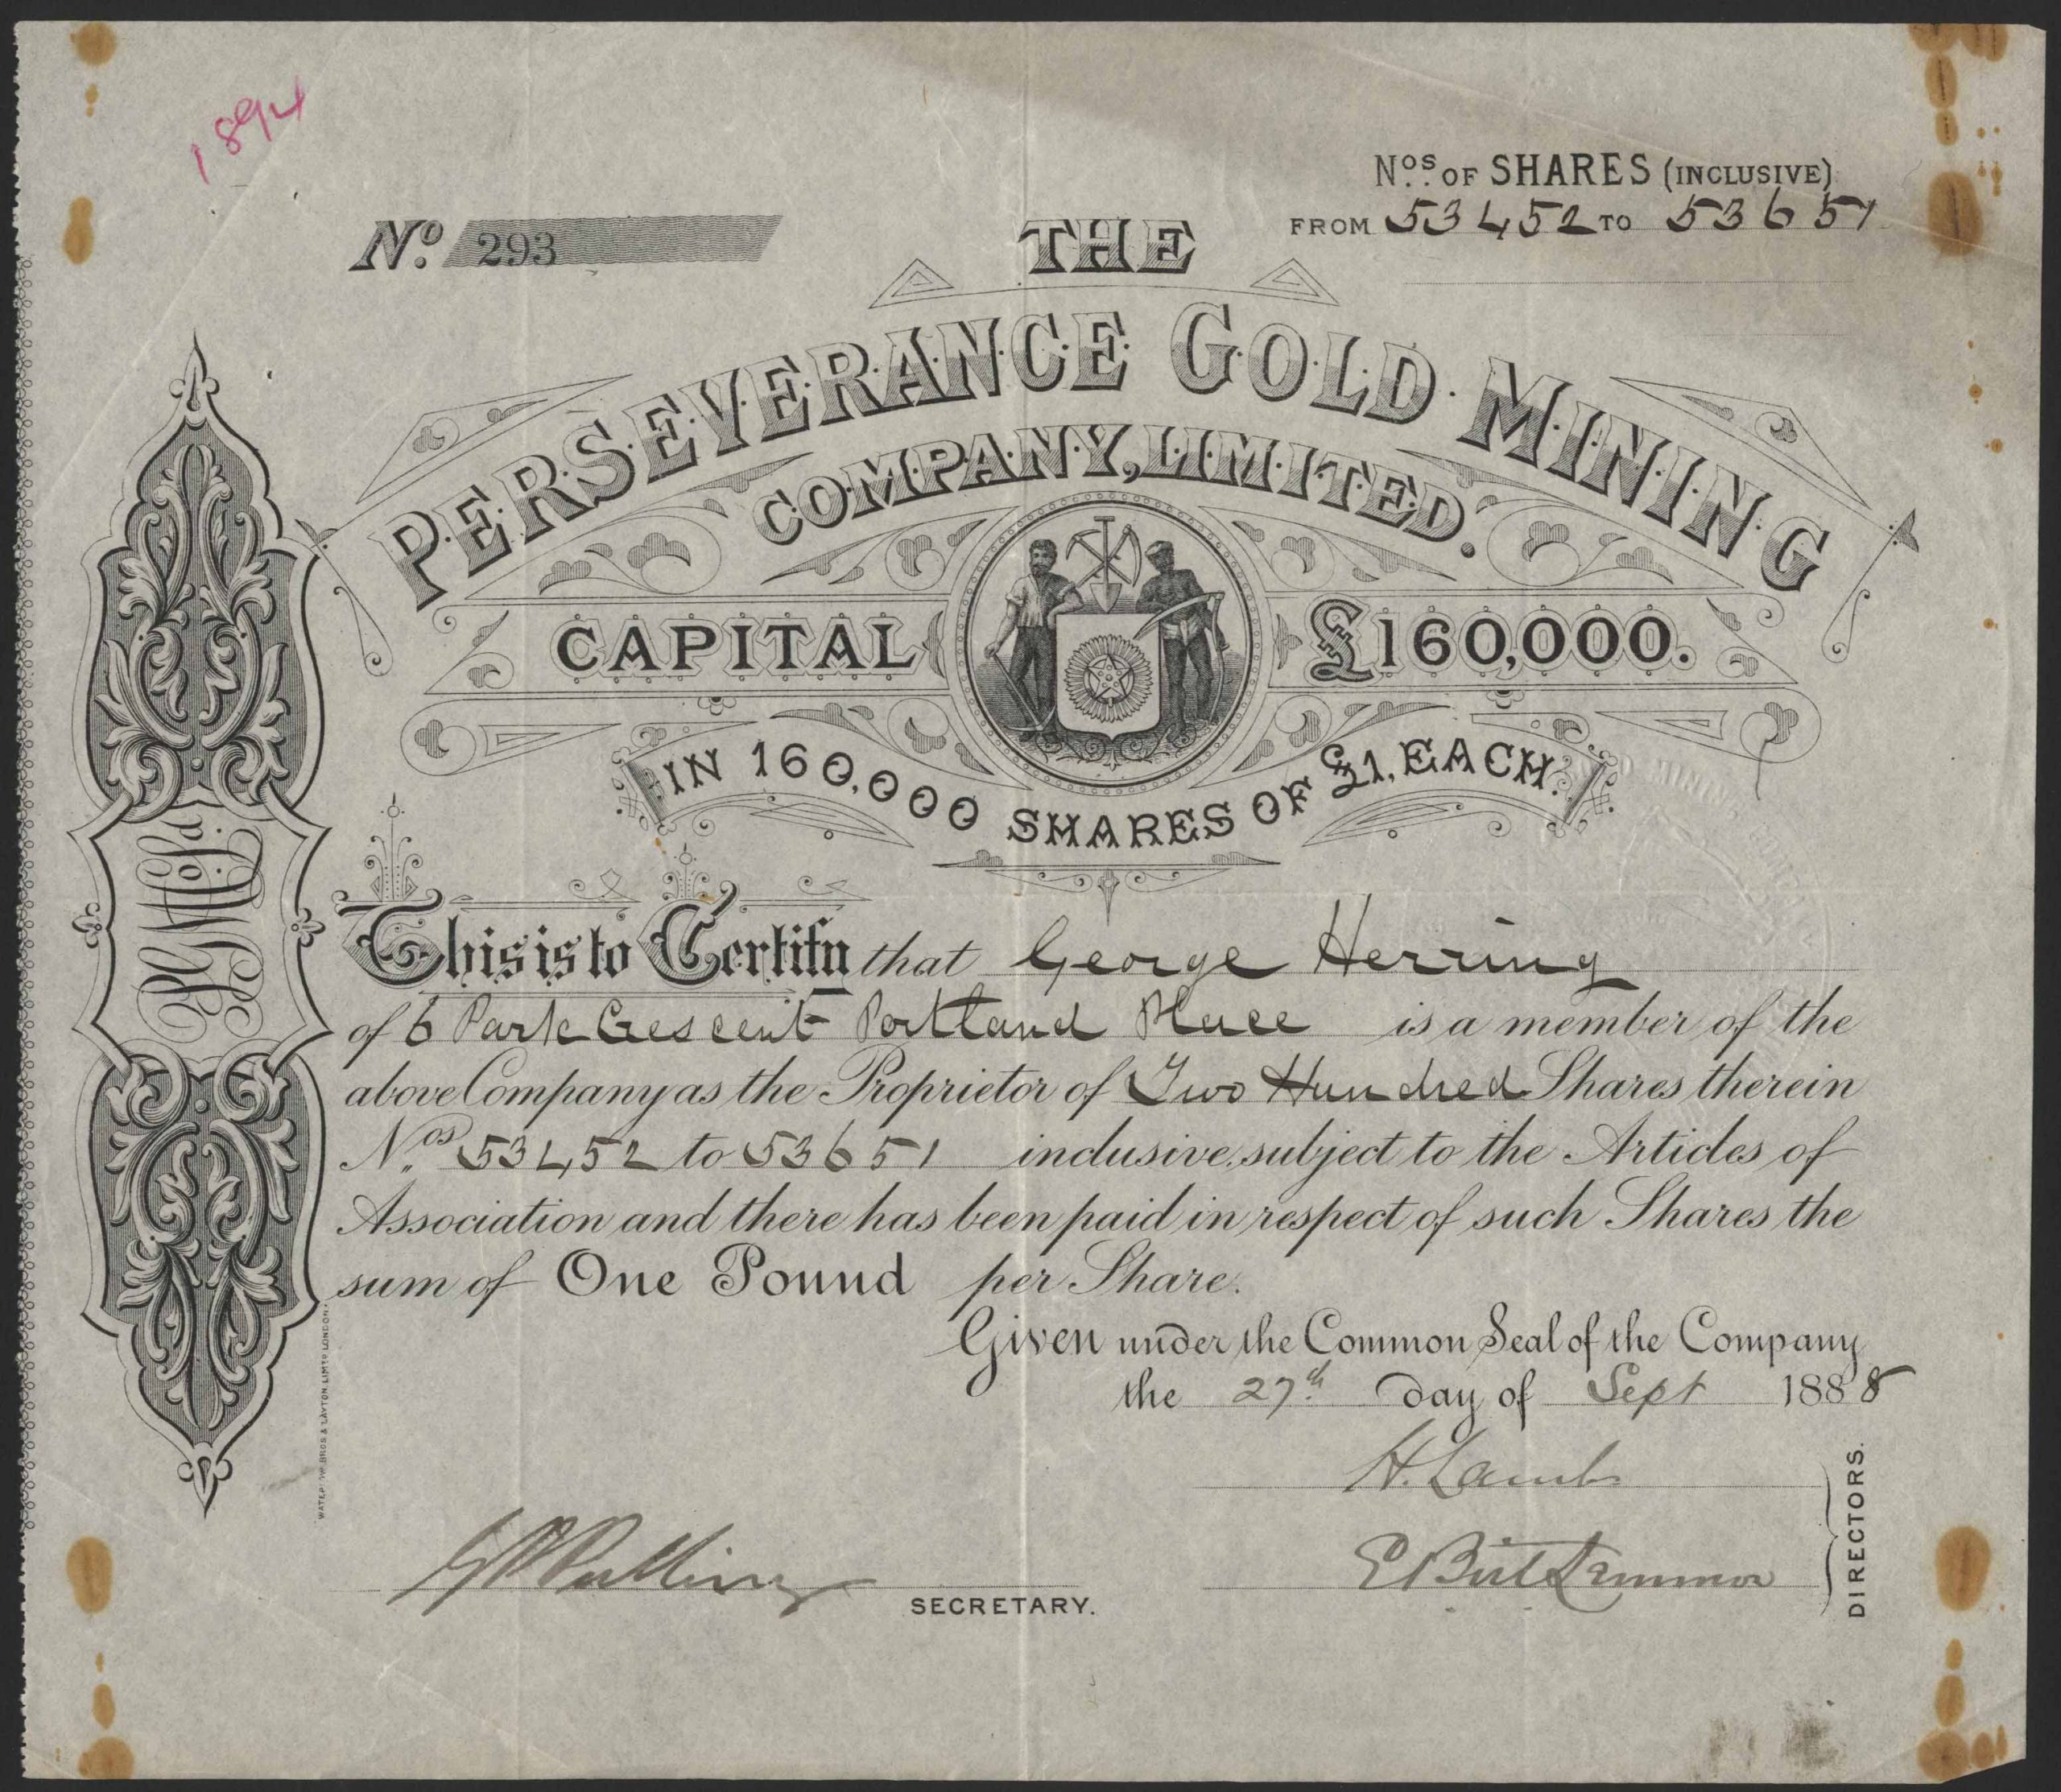 1894
Nos. OF SHARES (INCLUSIVE)
FROM 53452 TO 53651
No. 293
THE
PERSEVERANCE GOLD MINING
COMPANY, LIMITED.
CAPITAL £160,000.
IN 160,000 SHARES OF £1, EACH.
This is to Certify that George Herring
of 6 Park Crescent Portland Place is a member of the
above Company as the Proprietor of Two Hundred Shares therein
Nos. 53452 to 53651 inclusive, subject to the Articles of
Association and there has been paid in respect of such Shares the
sum of One Pound per Share.
Given under the Common Seal of the Company
the 27th day of Sept 1888
H. Lamb
DIRECTORS.
SECRETARY.
WATERLOW BROS & LAYTON LIMTD LONDON.